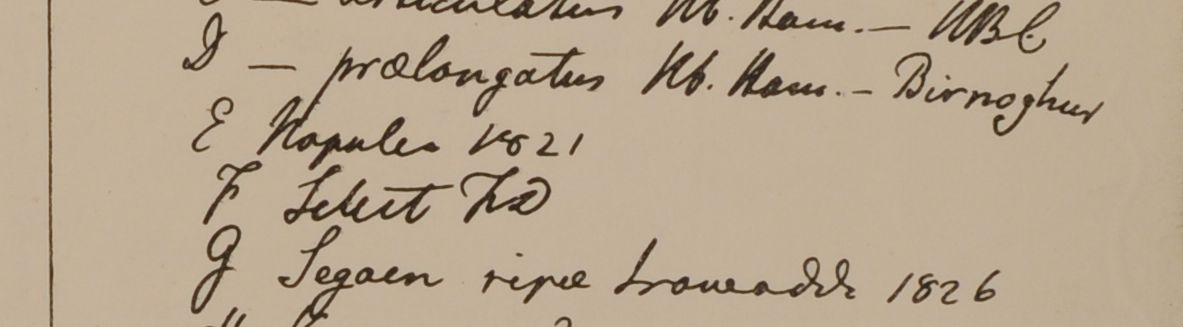 C — articulatus Hb. Ham. — HBC
D — prælongatus Hb. Ham. — Birnoghur
E Napulea 1821
F Silhet FD
G Segaen ripæ Irawaddi 1826